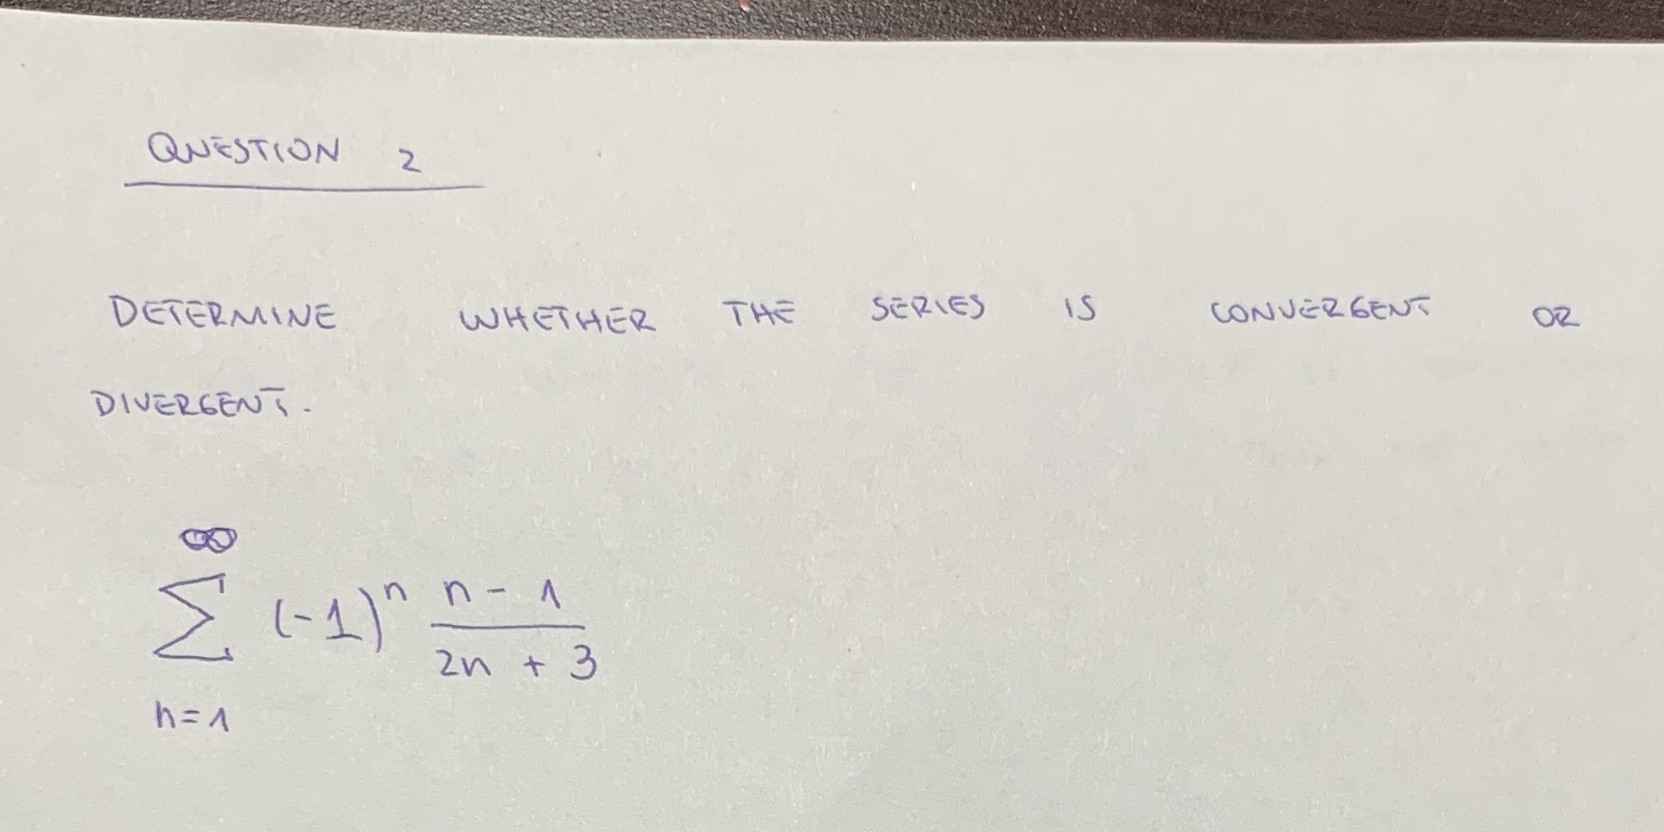 QUESTION 2
DETERMINE WHETHER THE SERIES IS CONVERGENT OR
DIVERGENT.
∞
∑ (-1)^n (n - 1)/(2n + 3)
n=1